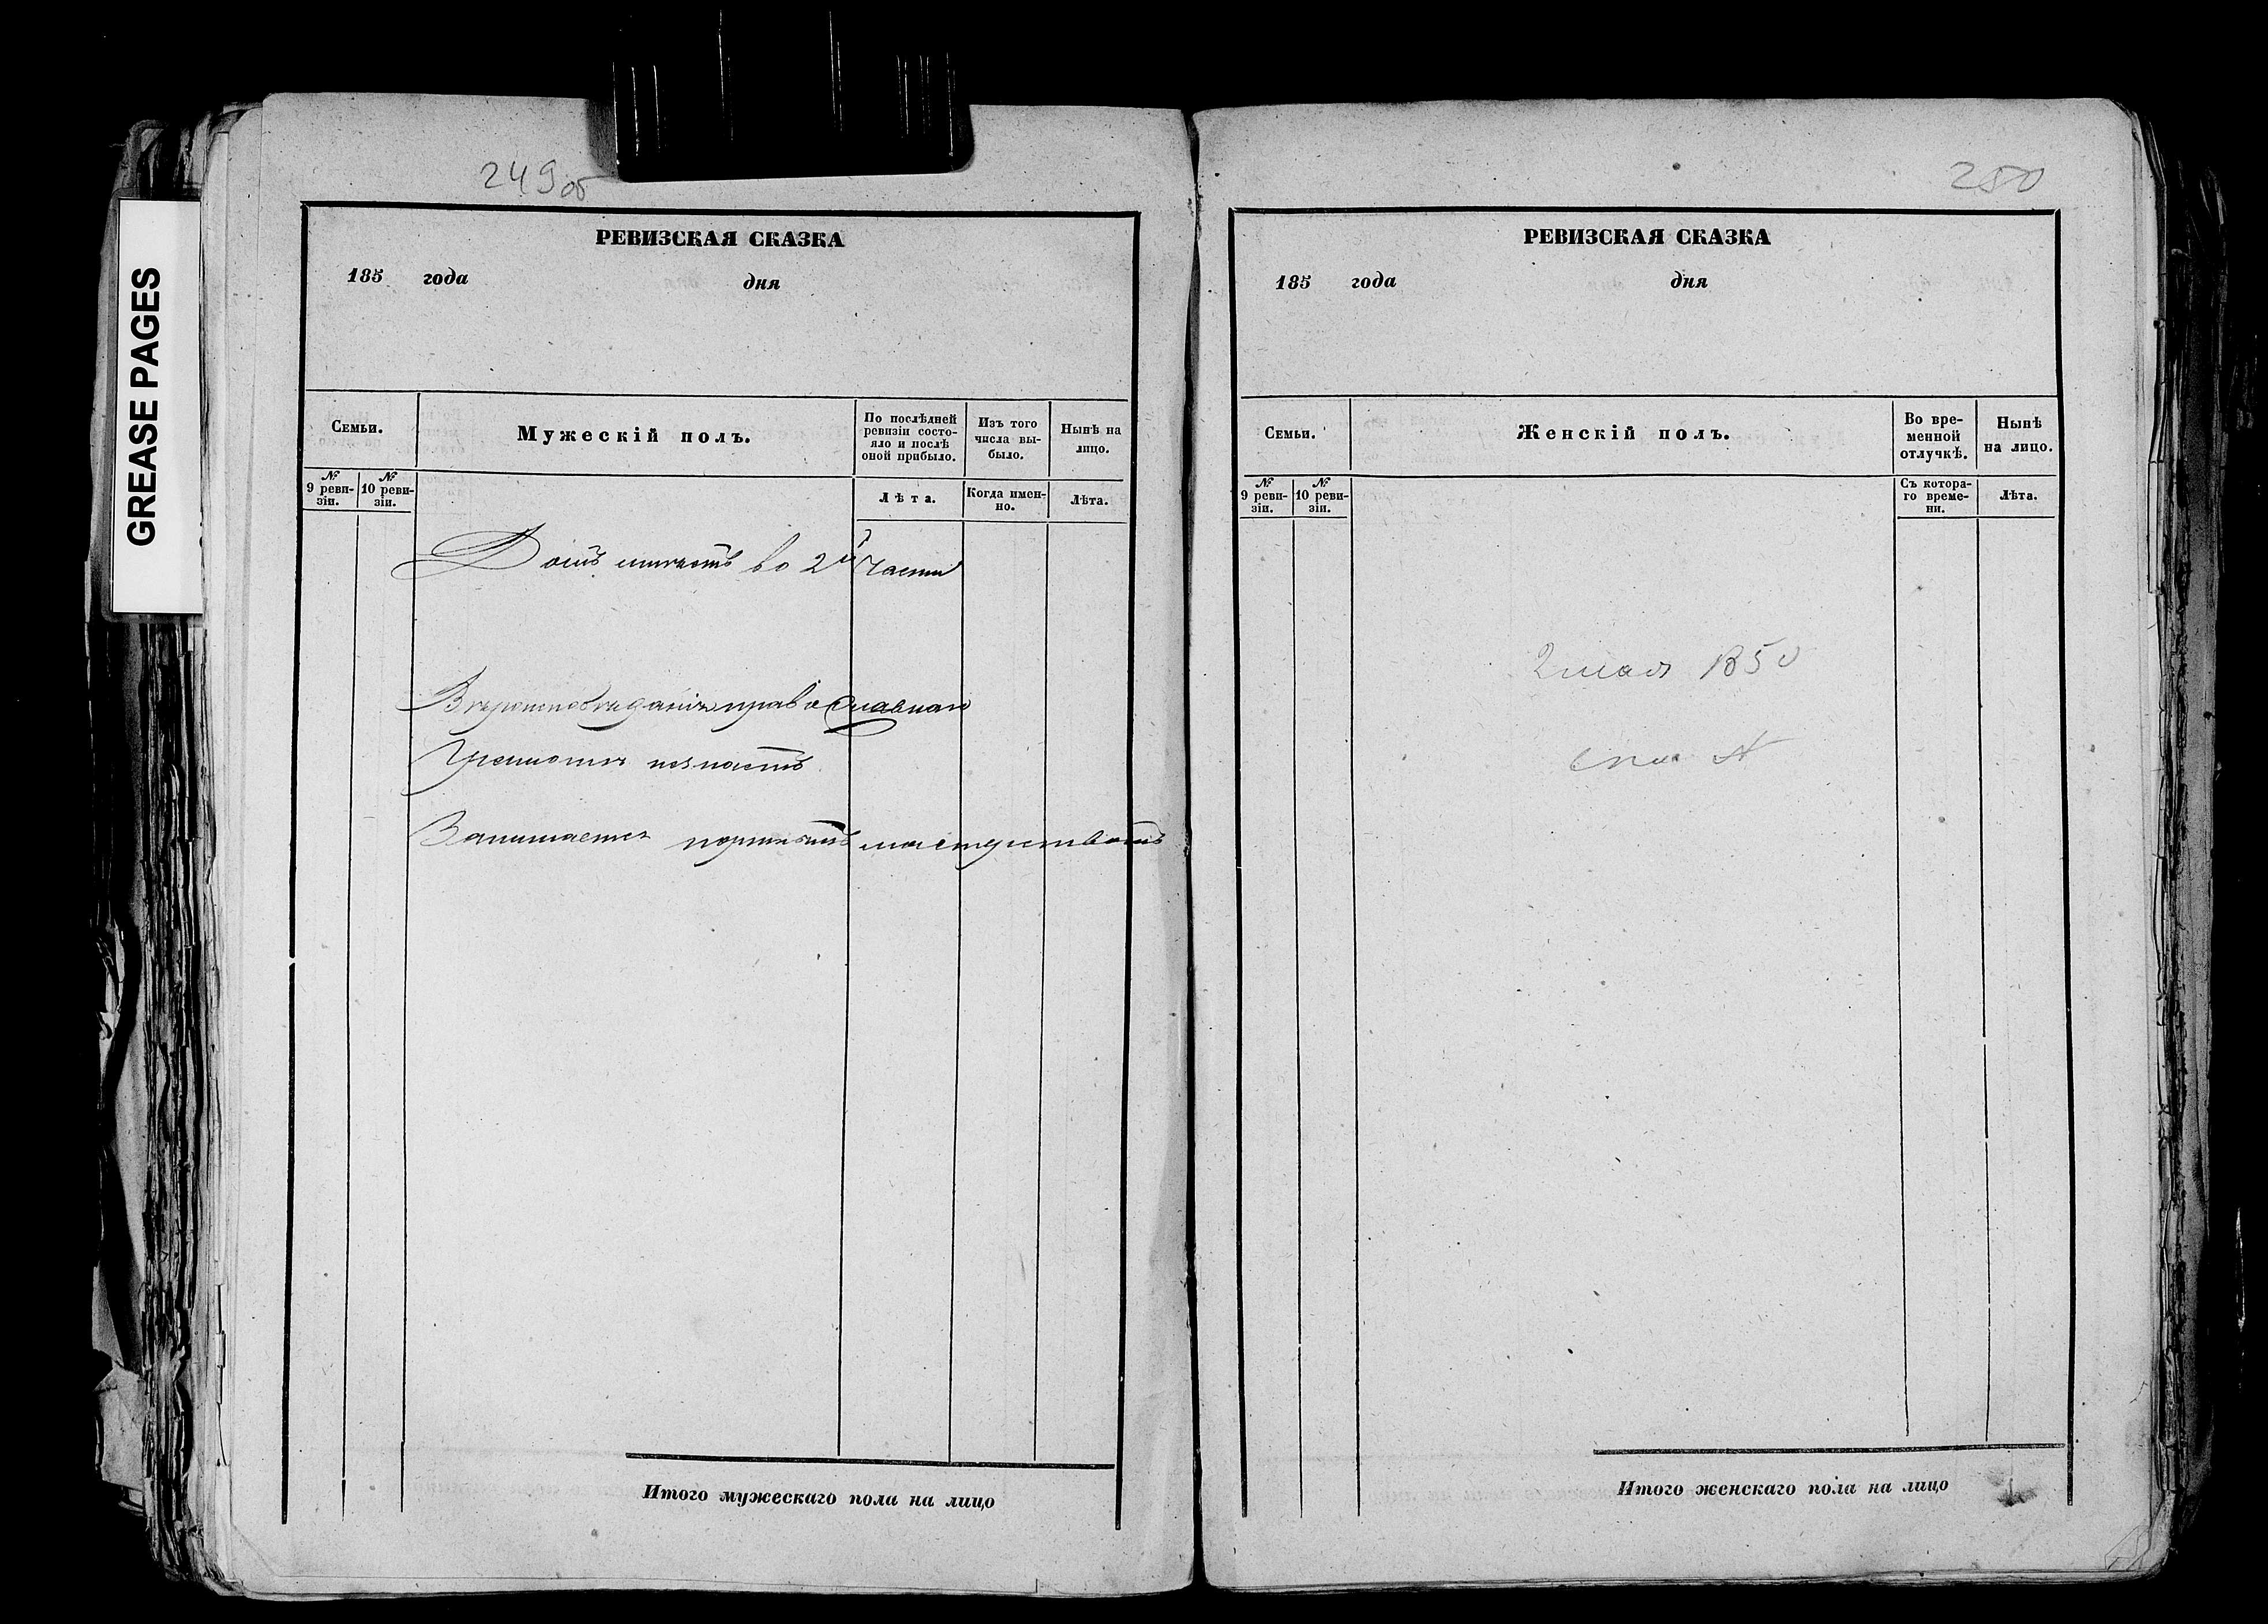 GREASE PAGES
249об
РЕВИЗСКАЯ СКАЗКА
185 года дня
Семьи.
Мужескій полъ.
По послѣдней ревизіи состо-
яло и послѣ
оной прибыло.
Изъ того
числа вы-
было.
Нынѣ на
лицо.
№
9 реви-
зіи.
№
10 реви-
зіи.
Лѣта.
Когда имен-
но.
Лѣта.
Домъ имѣетъ во 2й части
Вѣроисповѣданія православнаго
Грамотѣ незнаетъ
Занимается портнымъ мастерствомъ
Итого мужескаго пола на лицо
250
РЕВИЗСКАЯ СКАЗКА
185 года дня
Семьи.
Женскій полъ.
Во вре-
менной
отлучкѣ.
Нынѣ
на лицо.
№
9 реви-
зіи.
№
10 реви-
зіи.
Съ котора-
го време-
ни.
Лѣта.
2 мая 1850
Итого женскаго пола на лицо